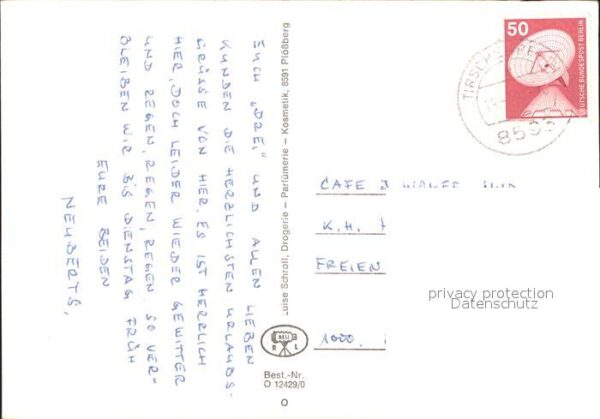 EUCH "DREI" UND ALLEN LIEBEN
KUNDEN DIE HERZLICHSTEN URLAUBS-
GRÜSSE VON HIER. ES IST HERRLICH
HIER, DOCH LEIDER WIEDER GEWITTER
UND REGEN, REGEN, REGEN. SO VER-
BLEIBEN WIR BIS DIENSTAG FRÜH
EURE BEIDEN
NEUBERTS,
Luise Schroll, Drogerie – Parfümerie – Kosmetik, 8591 Plößberg
BEU
R L
Best.-Nr.
O 12429/0
50
DEUTSCHE BUNDESPOST BERLIN
TIRSCHEN
859
CAFE
K.H.
FREIEN
1000
privacy protection
Datenschutz